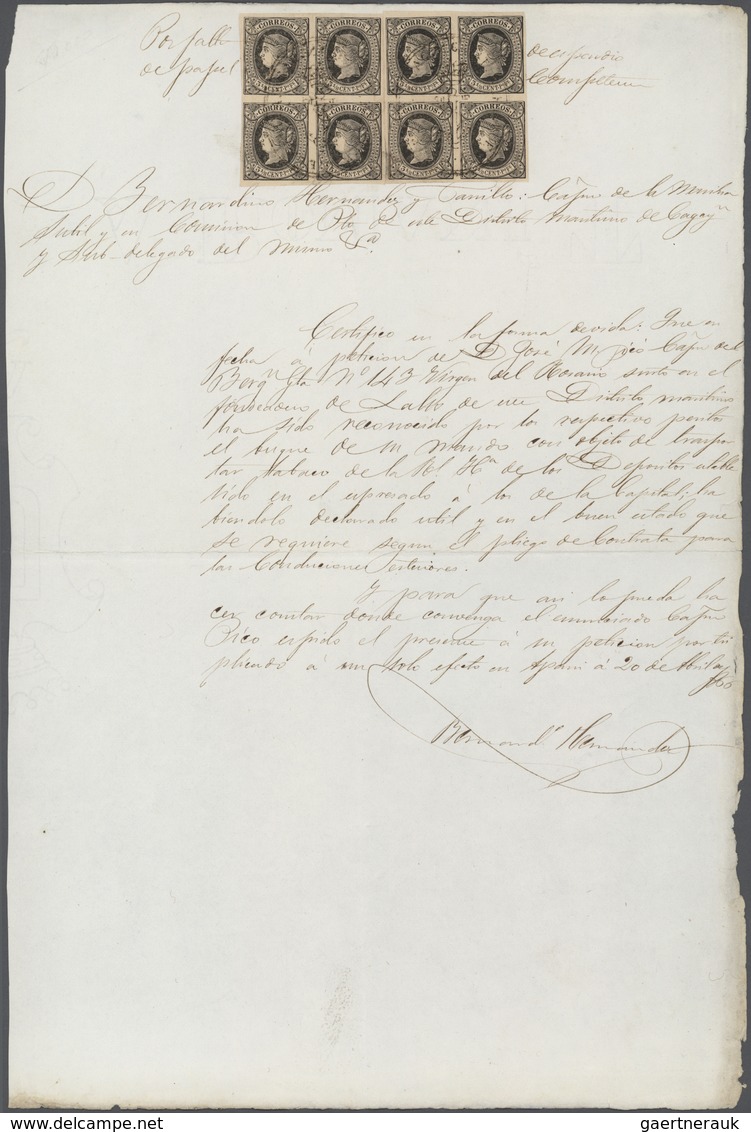 Por falta
de papel
CORREOS CORREOS CORREOS CORREOS
CORREOS CORREOS CORREOS CORREOS
D Bernardino Hernandez y : Capn de la Marina
Sutil y en Comision de Pto de este Distrito maritimo de Cagayn
y Sub-delegado del mismo &a.
Certifico en la forma devida: Que en
fecha á peticion de D José M. Picó Capn del
Bergn Gta No 143 Virgen del Rosario surto en el
fondeadero de Lalloc de este Distrito maritimo
ha sido reconocido por los respectivos peritos
el buque de su mando con objeto de traspor
tar tabaco de la Rl. Ha de los Depositos estable
sido en el espresado á los de la Capital; ha
biendolo declarado util y en el buen estado que
se requiere segun el pliego de Contrata para
las Conduciones esteriores.
Y para que asi lo pueda ha
cer constar donde convenga el enunciado Capn
Pico espido el presente á su peticion por tri
plicado á un solo efecto en Aparri á 20 de Abril de
1866
Bernando Hernandez
gaertnerauk